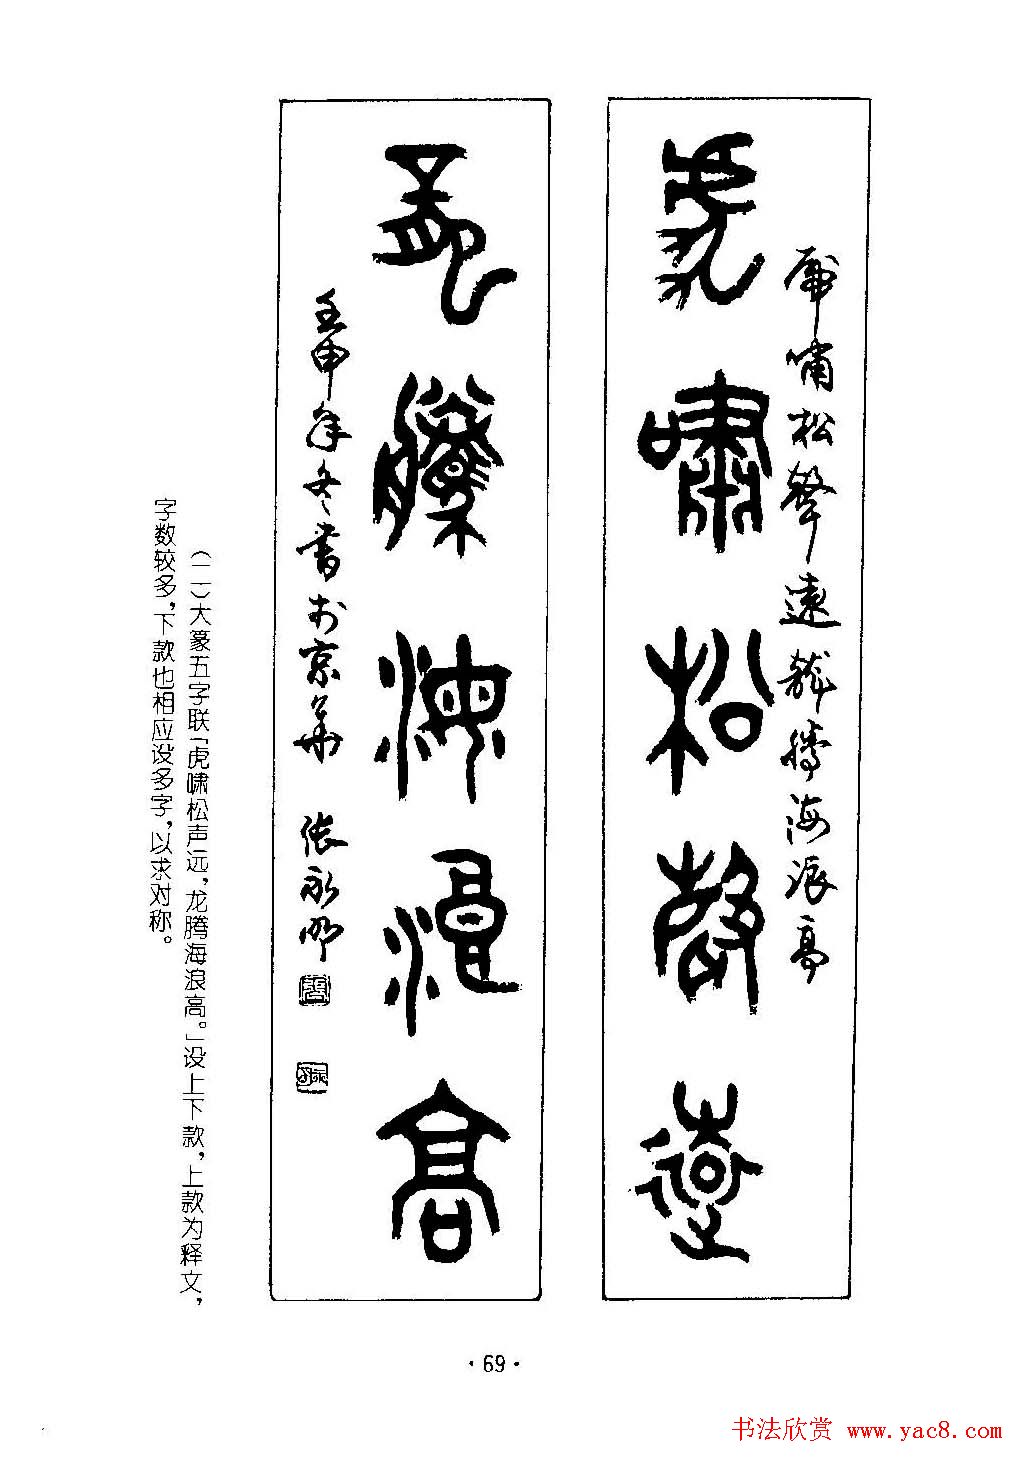 虎嘯松聲遠龍騰海浪高
虎嘯松聲遠
龍騰海浪高
壬申年冬書於京華 張永明
（二）大篆五字联「虎啸松声远，龙腾海浪高。」设上下款，上款为释文，
字数较多，下款也相应设多字，以求对称。
·69·
书法欣赏 www.yac8.com